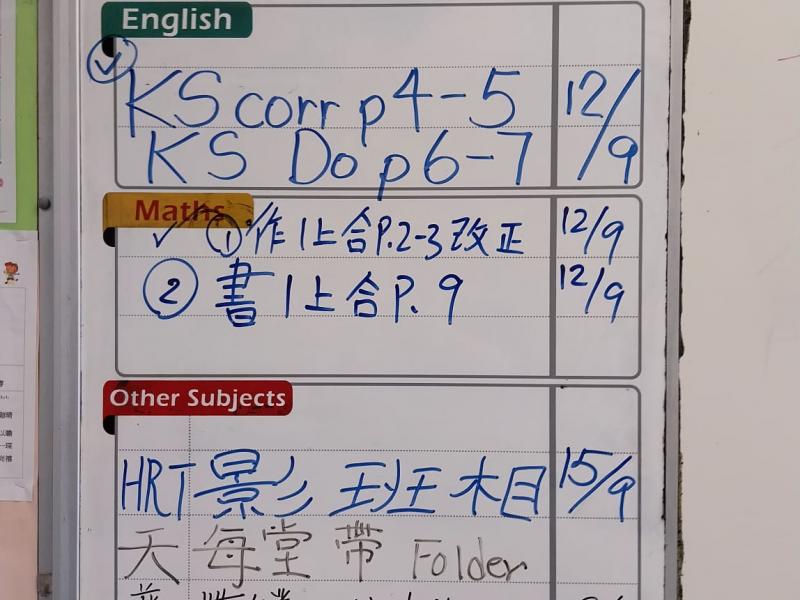 English
KS corr p4-5 12/
KS Do p6-7 /9
Maths
✓ ① 作1上合P.2-3改正 12/9
② 書1上合P.9 12/9
Other Subjects
HRT 影 班相 15/9
天 每堂 帶 Folder